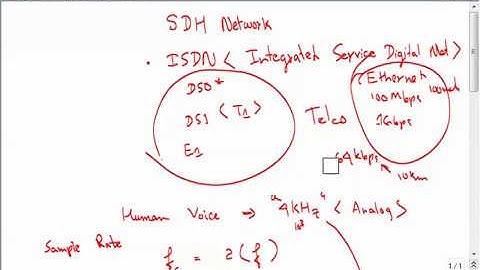 SDH Network
• ISDN < Integrated Service Digital Net >
DS0 *
DS1 < T1 >
E1
Telco
Ethernet
100 Mbps
1Gbps
64 kbps
10km
Human Voice → 4KHz < Analog >
10³
Sample Rate
fs = 2 (f)
1 / 1